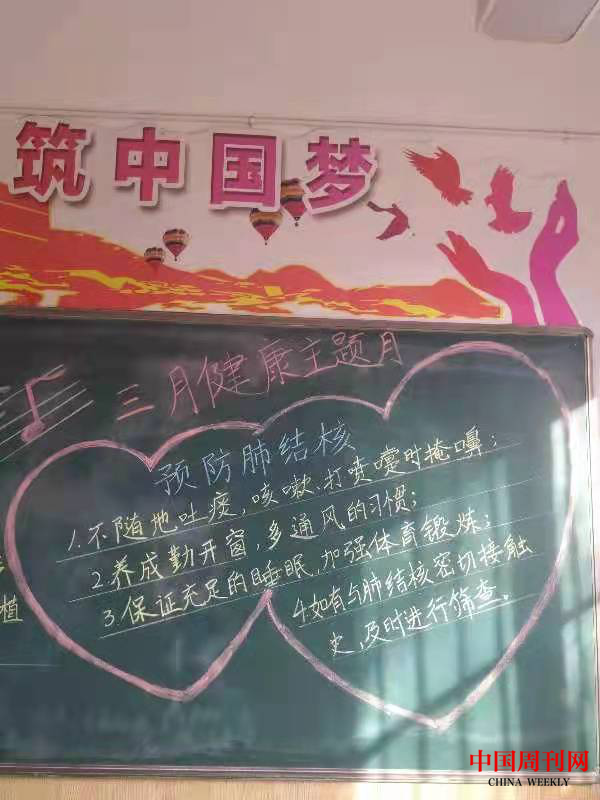 筑中国梦
三月健康主题月
预防肺结核
1.不随地吐痰,咳嗽、打喷嚏时掩嘴;
2.养成勤开窗,多通风的习惯;
3.保证充足的睡眠,加强体育锻炼;
4.如有与肺结核密切接触
史,及时进行筛查。
植
中国周刊网
CHINA WEEKLY